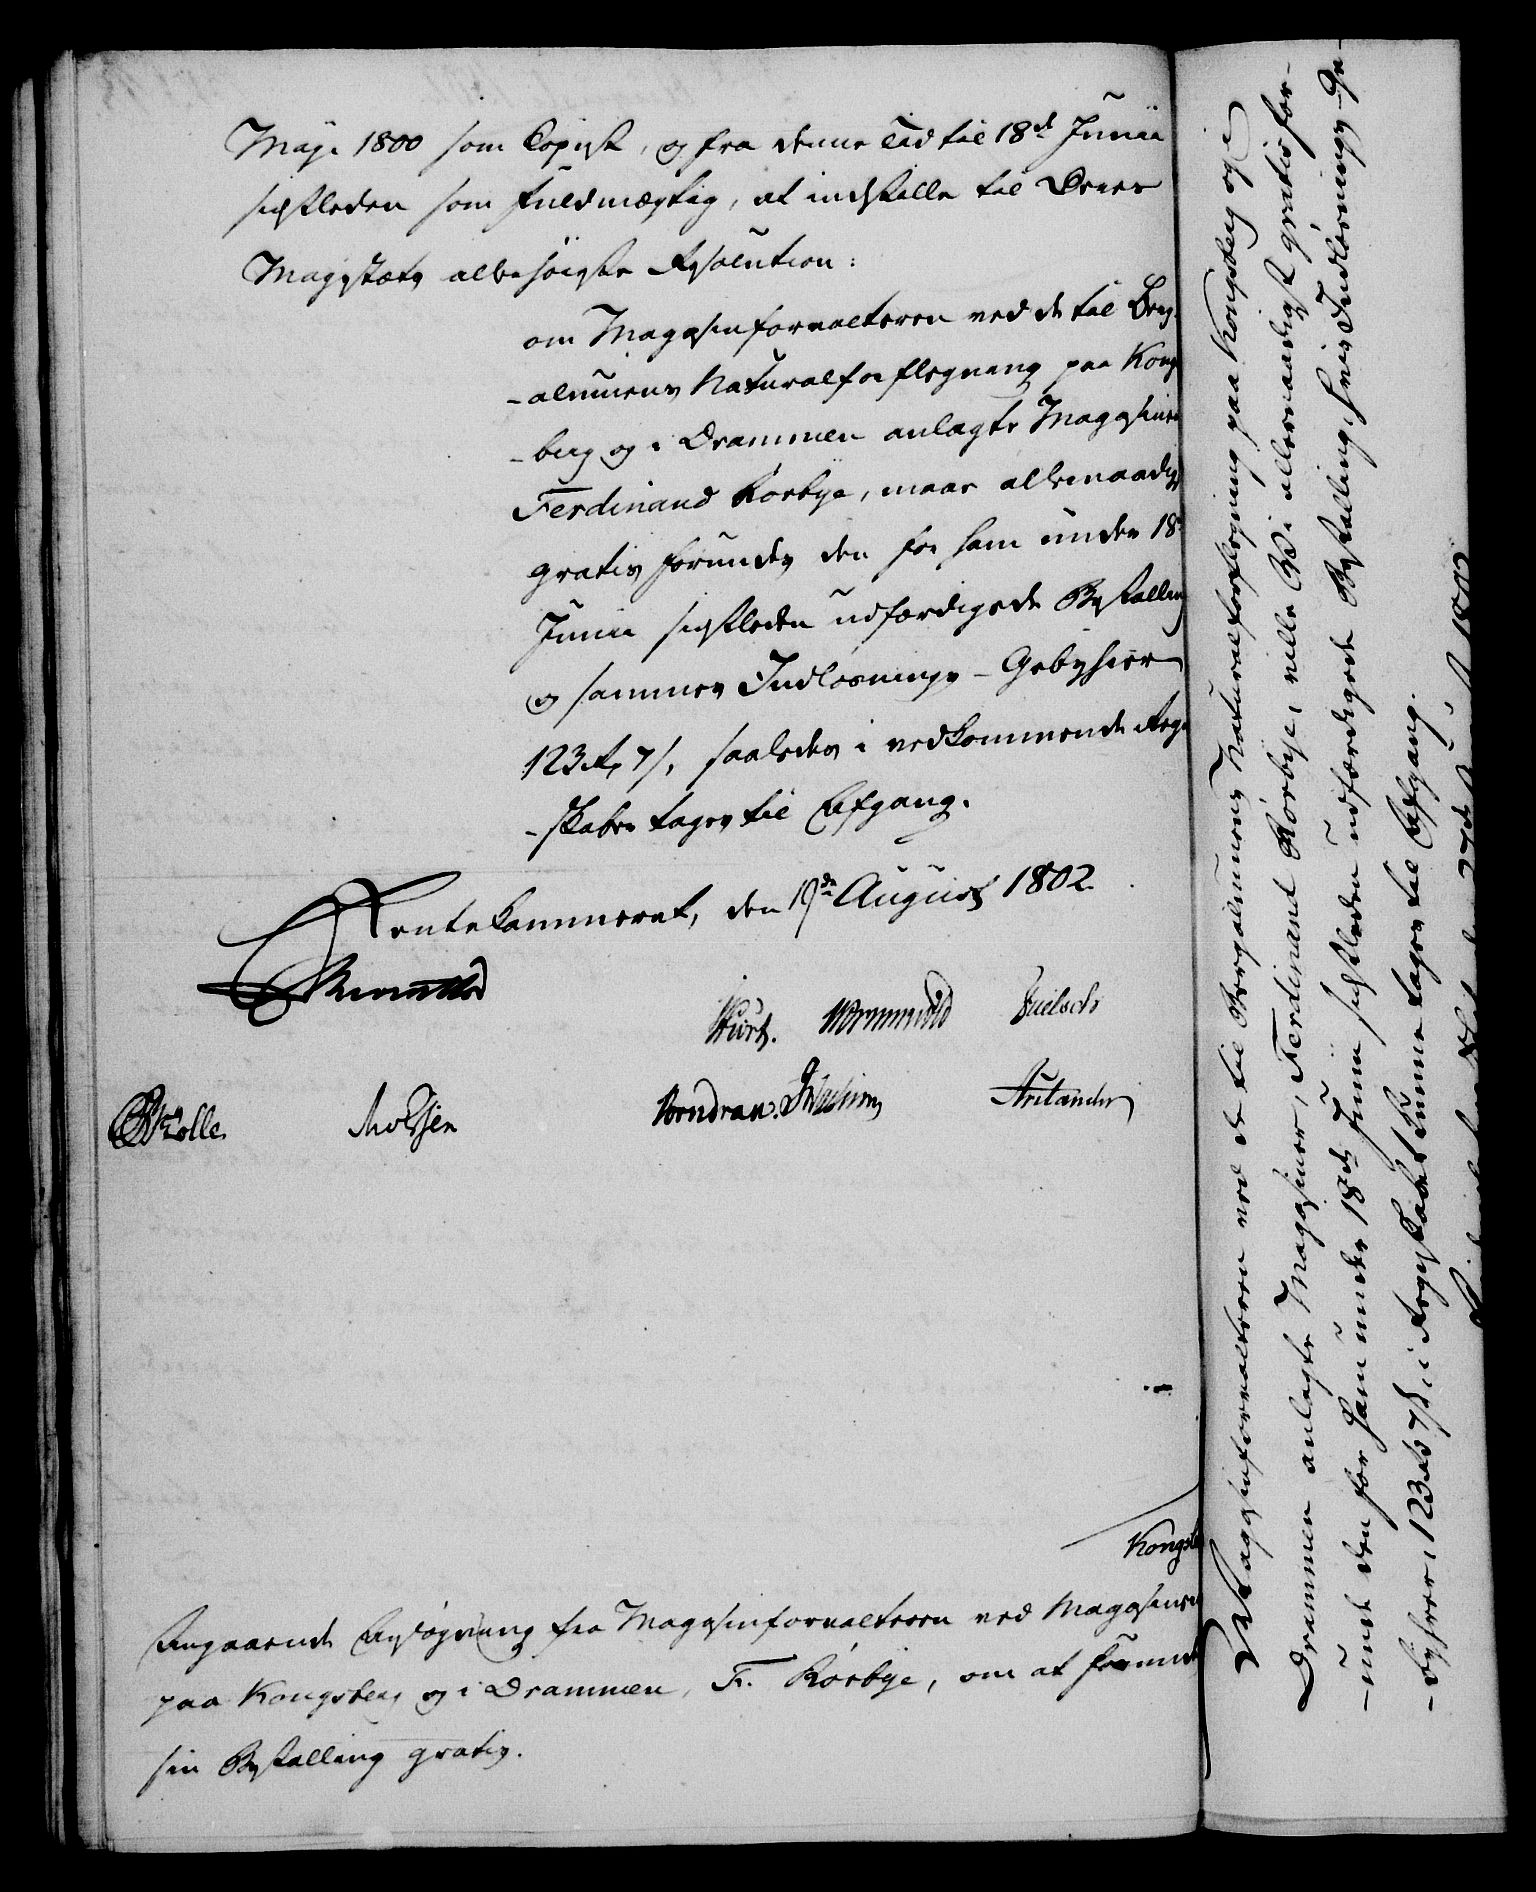 Maji 1800 som Copist, og fra denne Tid til 18de Junii
sidstleden som Fuldmægtig, at indstille til Deres
Majestæts allerhöieste Resolution:
om Magasinforvalteren ved de til Berg-
-alünens Naturalforflegning paa Kongs
-berg og i Drammen anlagte Magasiner
Ferdinand Rörbye, maae allernaadigst
gratis forundes den for ham under 18de
Junii sidstleden udfærdigede Bestalling
og sammes Indlösnings-Gebyhrer
123 rd 7 s, saaledes i vedkommende Regn
-skaber tages til Afgang.
Rentekammeret, den 19de August 1802.
Reventlow
Wormskiold
Kongsb
Angaaende Ansögning fra Magasinforvalteren ved Magasinerne
paa Kongsberg og i Drammen, F. Rörbye, om at forunde
sin Bestalling gratis.
Magasinforvalteren ved de til Bergalünens Naturalforflegning paa Kongsberg og i
Drammen anlagte Magasiner, Ferdinand Rörbye, ville Vi allernaadigst gratis for-
-unde den for ham under 18de Junii sidstleden udfærdigede Bestalling, hvis Indlösnings-Ge-
-byhrer, 123 rd 7 s, i Regnskabet kunne tages til Afgang.
den 27de August 1802